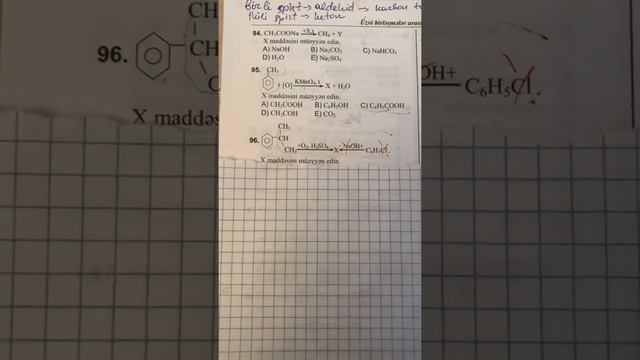 Birli spirt → aldehid → karbon t
İkili spirt → keton
Üzvi birləşmələr arası
94. CH₃COONa +X,t → CH₄ + Y
X maddəsini müəyyən edin.
A) NaOH B) Na₂CO₃ C) NaHCO₃
D) H₂O E) Na₂SO₄
95. CH₃
+ [O] KMnO₄, t → X + H₂O
X maddəsini müəyyən edin.
A) CH₃COOH B) C₆H₅OH C) C₆H₅COOH
D) CH₃COH E) CO₂
96. CH₃
CH
CH₃ +O₂, H₂SO₄ → X ← NaOH+ C₆H₅Cl
X maddəsini müəyyən edin.
CH
96. CH
C
X maddəs
OH+ C₆H₅Cl.